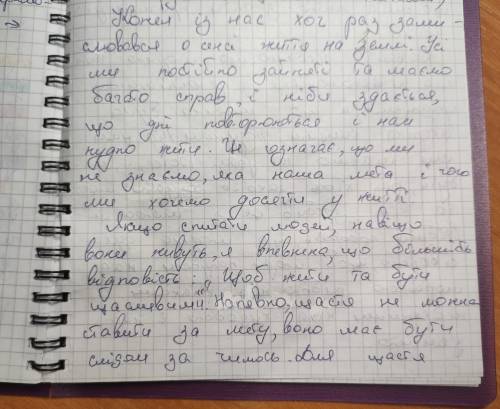 Кожен із нас хоч раз зами-
слювався о сенсі життя на землі. Усі
ми постійно зайняті та маємо
багато справ, і ніби здається,
що дні повторюються і нам
нудно жити. Це означає, що ми
не знаємо, яка наша мета і чого
ми хочемо досягти у житті
Якщо спитати людей, навіщо
вони живуть, я впевнена, що більшість
відповість: „Щоб жити та бути
щасливими". Напевно, щастя не можна
ставити за мету, воно має бути
слідом за чимось. Для щастя